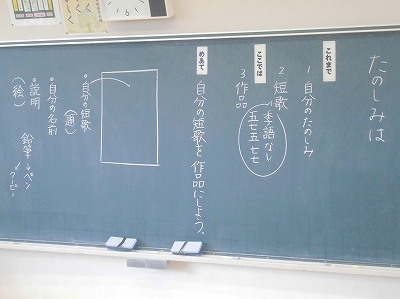 たのしみは
これまで
1 自分のたのしみ
ここでは
2 短歌
季語なし
五七五七七
3 作品
めあて
自分の短歌を作品にしよう。
・自分の短歌
(筆)
・自分の名前
・説明
(絵)
鉛筆
ペン